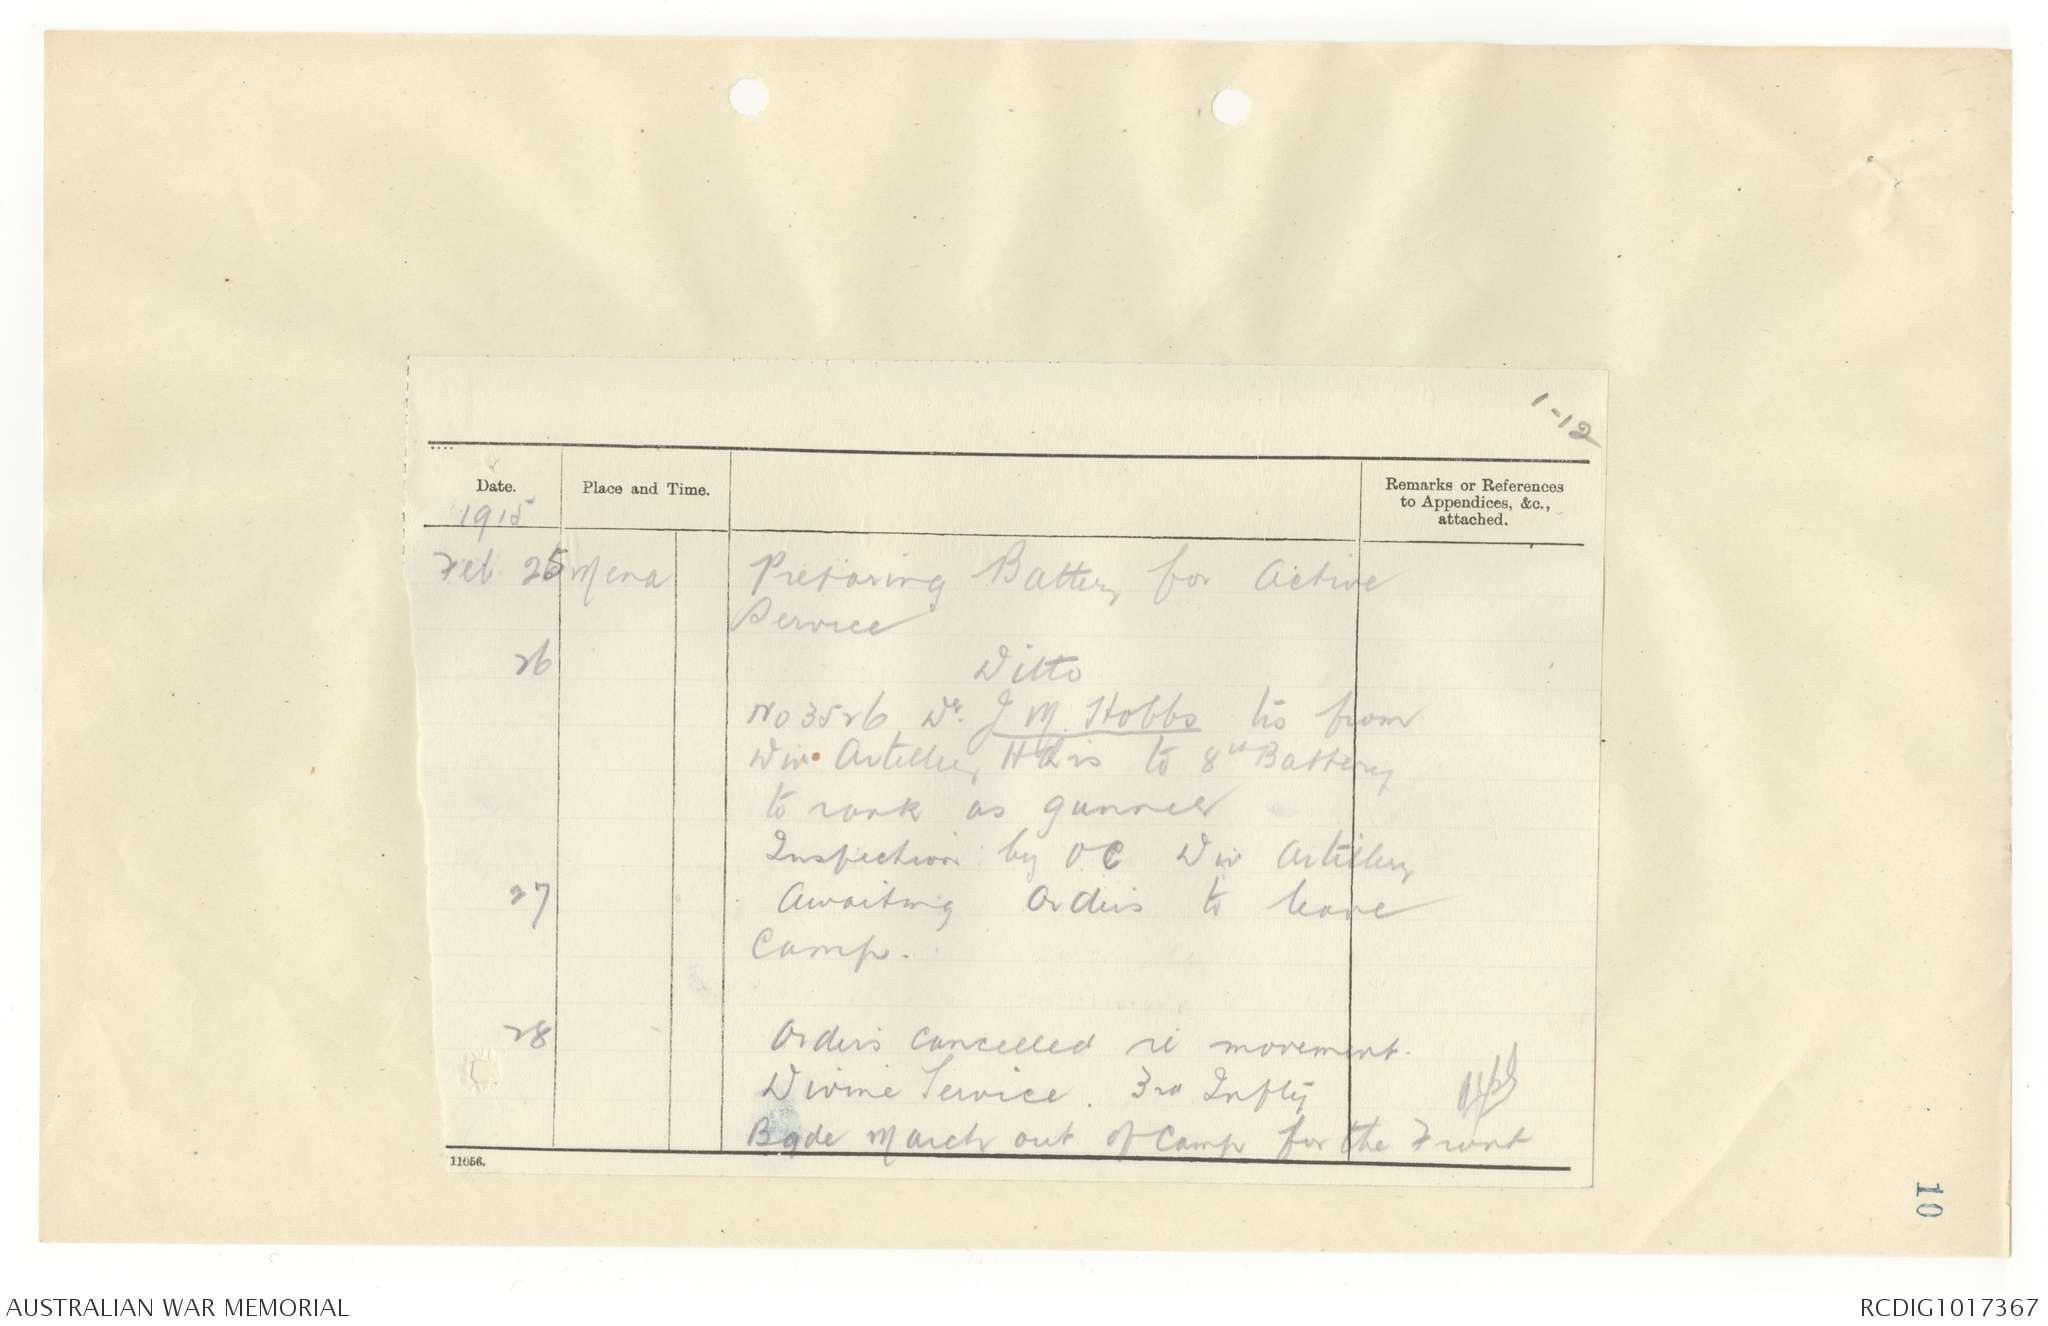 1-12
Date. Place and Time. Remarks or References
to Appendices, &c.,
attached.
1915
Feb 25 Mena Preparing Battery for Active
Service
26 Ditto
No 3526 Dr. J M Hobbs trs from
Div Artillery Hdrs to 8th Battery
to rank as gunner
Inspection by OC Div Artillery
27 Awaiting Orders to leave
Camp.
28 Orders cancelled re movement.
Divine Service. 3rd Infty
Bgde march out of camp for the Front
11056.
10
AUSTRALIAN WAR MEMORIAL RCDIG1017367